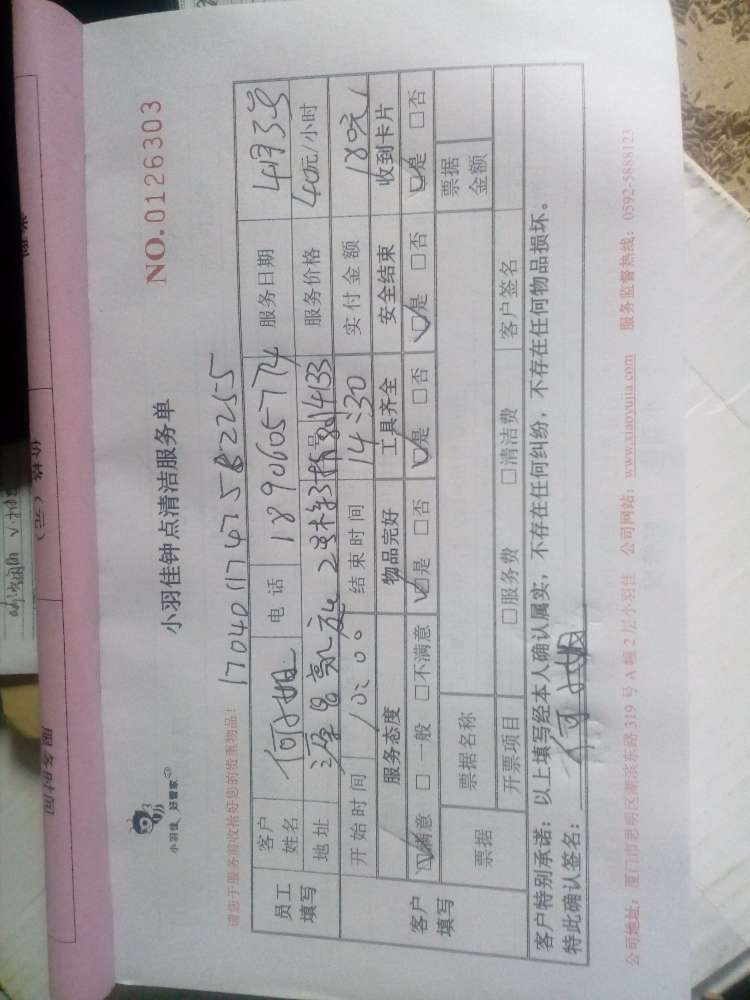 小羽佳 好管家
小羽佳钟点清洁服务单
NO.0126303
请您于服务前收拾好您的贵重物品!
1704011747582255
员工填写
客户姓名 何小姐 电话 18906057774 服务日期 4月3号
地址 2号楼 服务价格 40元/小时
开始时间 10:00 结束时间 14:30 实付金额 180元
客户填写
服务态度 物品完好 工具齐全 安全结束 收到卡片
☑满意 □一般 □不满意 ☑是 □否 ☑是 □否 ☑是 □否 ☑是 □否
票据 票据名称 票据金额
开票项目 □服务费 □清洁费 客户签名
客户特别承诺:以上填写经本人确认属实,不存在任何纠纷,不存在任何物品损坏。
特此确认签名: 何小姐
公司地址:厦门市思明区湖滨东路 319 号 A 幢 2 层小羽佳 公司网站:www.xiaoyujia.com 服务监督热线:0592-5888123
服务时间